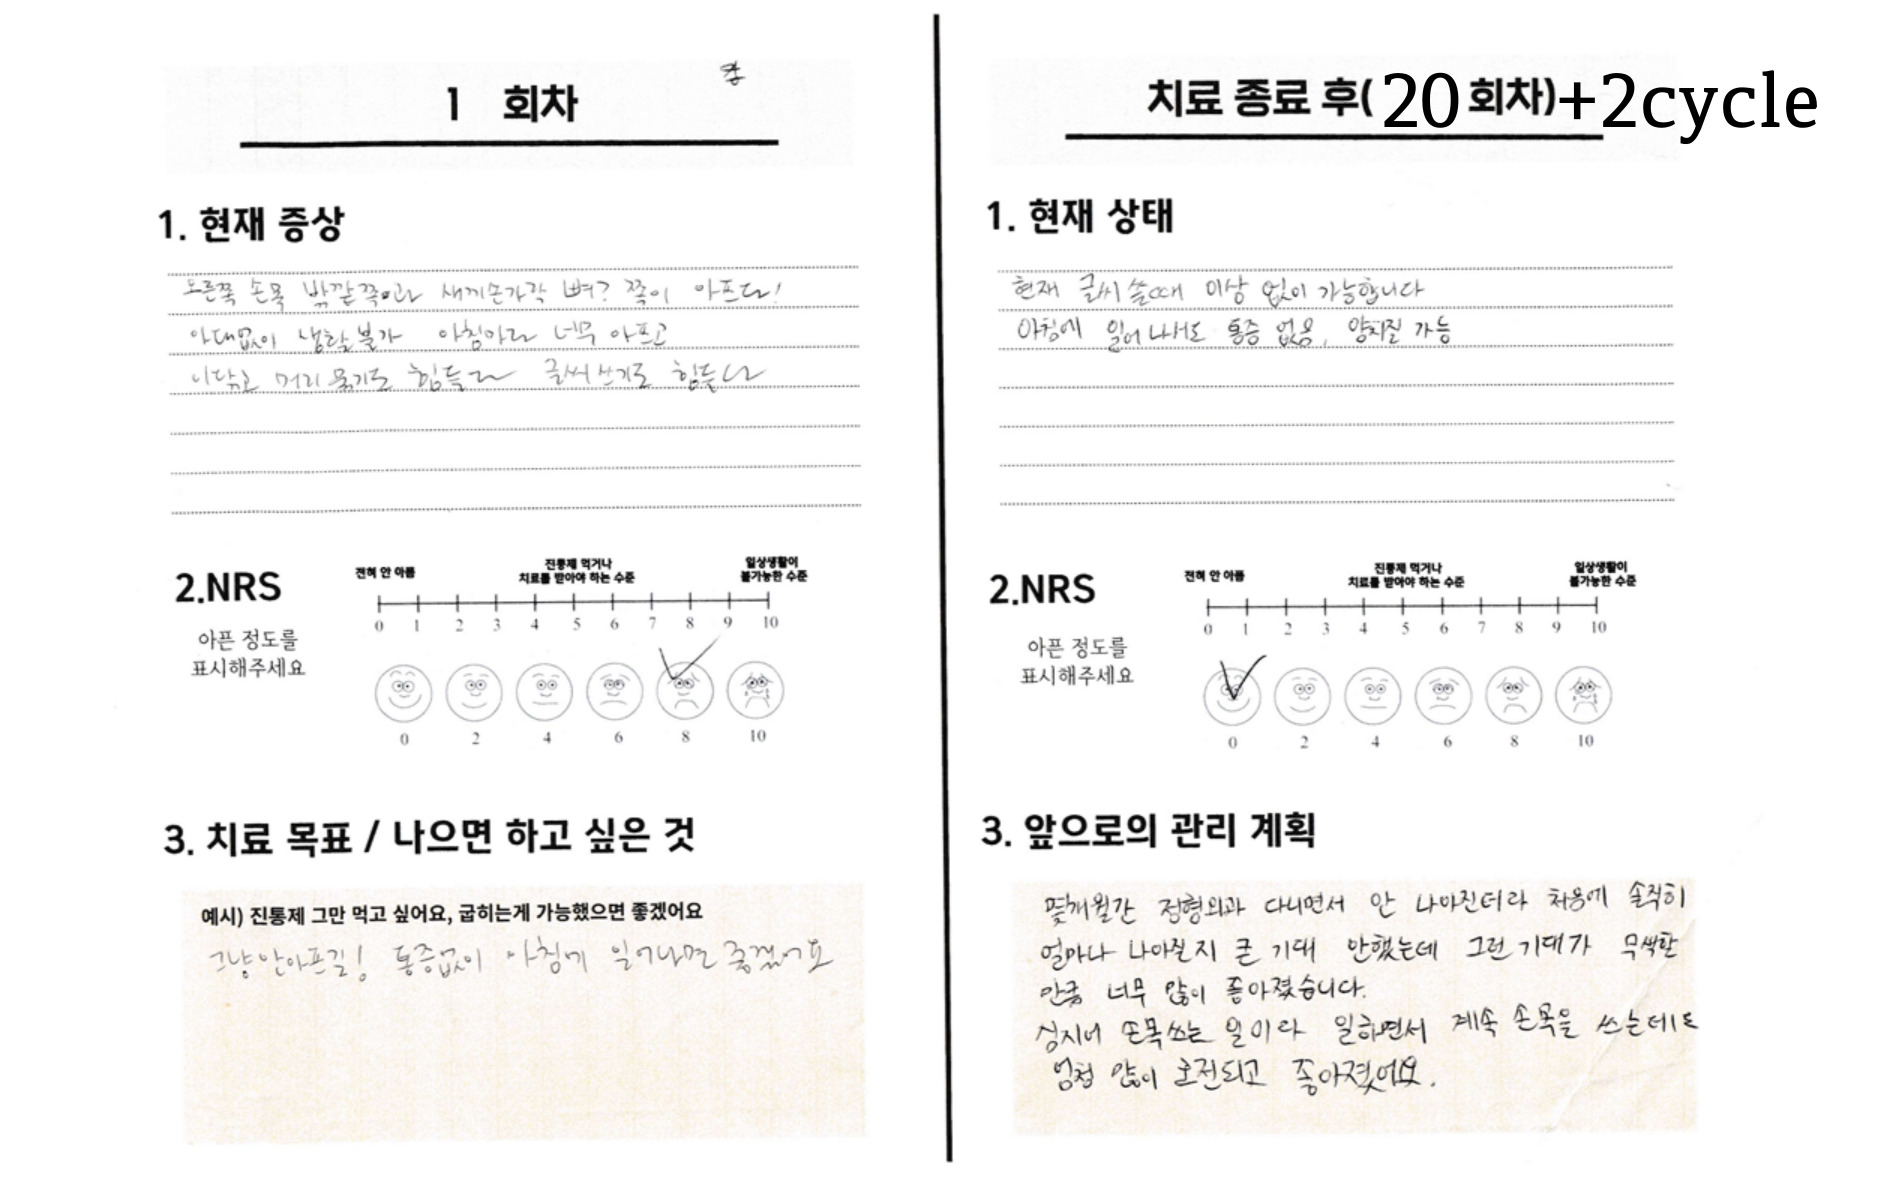 1 회차
1. 현재 증상
오른쪽 손목 바깥쪽이랑 새끼손가락 뼈? 쪽이 아프다!
아대없이 생활불가 아침마다 너무 아프고
이닦고 머리 묶기도 힘들다 글씨 쓰기도 힘들다
2.NRS
아픈 정도를
표시해주세요
전혀 안 아픔
진통제 먹거나
치료를 받아야 하는 수준
일상생활이
불가능한 수준
0 1 2 3 4 5 6 7 8 9 10
0 2 4 6 8 10
3. 치료 목표 / 나으면 하고 싶은 것
예시) 진통제 그만 먹고 싶어요, 굽히는게 가능했으면 좋겠어요
그냥 안아프길! 통증없이 아침에 일어나면 좋겠어요
치료 종료 후( 20 회차)+2cycle
1. 현재 상태
현재 글씨 쓸때 이상 없이 가능합니다
아침에 일어나서도 통증 없음, 양치질 가능
2.NRS
아픈 정도를
표시해주세요
전혀 안 아픔
진통제 먹거나
치료를 받아야 하는 수준
일상생활이
불가능한 수준
0 1 2 3 4 5 6 7 8 9 10
0 2 4 6 8 10
3. 앞으로의 관리 계획
몇개월간 정형외과 다니면서 안 나아진터라 처음에 솔직히
얼마나 나아질지 큰 기대 안했는데 그런 기대가 무색할
만큼 너무 많이 좋아졌습니다.
심지어 손목쓰는 일이라 일하면서 계속 손목을 쓰는데도
엄청 많이 호전되고 좋아졌어요.